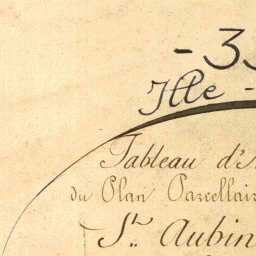 - 35
Ille -
Tableau d'A
du Plan Parcellair
St. Aubin